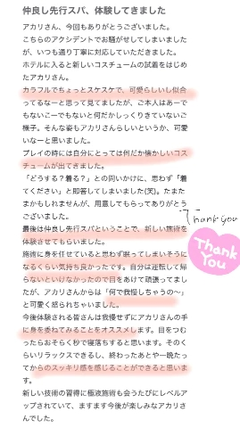 仲良し先行スパ、体験してきました
アカリさん、今回もありがとうございました。
こちらのアクシデントでお騒がせしてしまいました
が、いつも通り丁寧に対応していただきました。
ホテルに入ると新しいコスチュームの試着をはじめ
たアカリさん。
カラフルでちょっとスケスケで、可愛らしいし似合
ってるなーと思って見てましたが、ご本人はあーで
もないこーでもないと何だかしっくりきていないご
様子。そんな姿もアカリさんらしいというか、可愛
いなーと思いました。
プレイの時には自分にとっては何だか懐かしいコス
チュームが出てきました。
「どうする？着る？」との問いかけに、思わず「着
てください」と即答してしまいました(笑)。たまた
まかもしれませんが、用意してもらってありがとう
ございました。
最後は仲良し先行スパということで、新しい施術を
体験させてもらいました。
施術に身を任せていると思わず眠ってしまいそうに
なるくらい気持ち良かったです。自分は運転して帰
らないといけなかったので目をあけて頑張ってまし
たが、アカリさんからは「何で我慢しちゃうの〜」
と可愛く怒られちゃいました。
今後体験される皆さんは我慢せずにアカリさんの手
に身を委ねてみることをオススメします。目をつむ
ったらおそらく秒で寝落ちすると思います。そのく
らいリラックスできるし、終わったあとや一晩たって
からのスッキリ感を感じることができると思いま
す。
新しい技術の習得に極液施術も会うたびにレベルア
ップされていて、ますます今後が楽しみなアカリさ
んでした。
Thank you
THANK
YOU